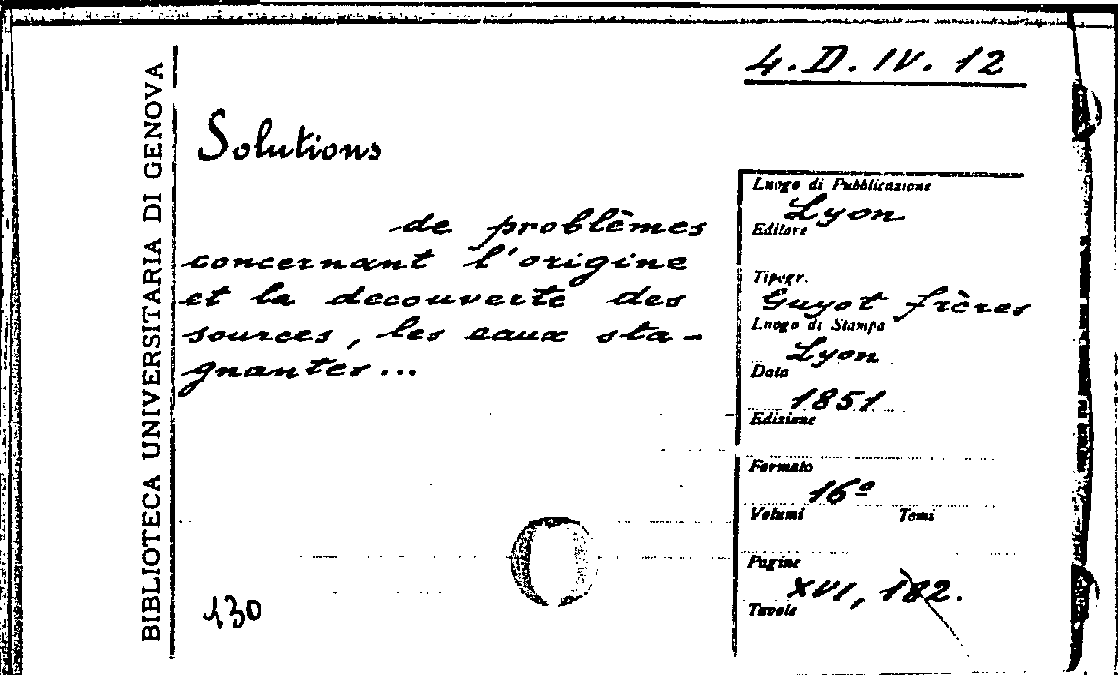 4. D. IV. 12
BIBLIOTECA UNIVERSITARIA DI GENOVA
Solutions
de problèmes
concernant l'origine
et la decouverte des
sources, les eaux sta-
gnantes...
130
Luogo di Pubblicazione
Lyon
Editore
Tipogr.
Guyot frères
Luogo di Stampa
Lyon
Data
1851
Edizione
Formato
16º
Volumi Tomi
Pagine
XVI, 182.
Tavole